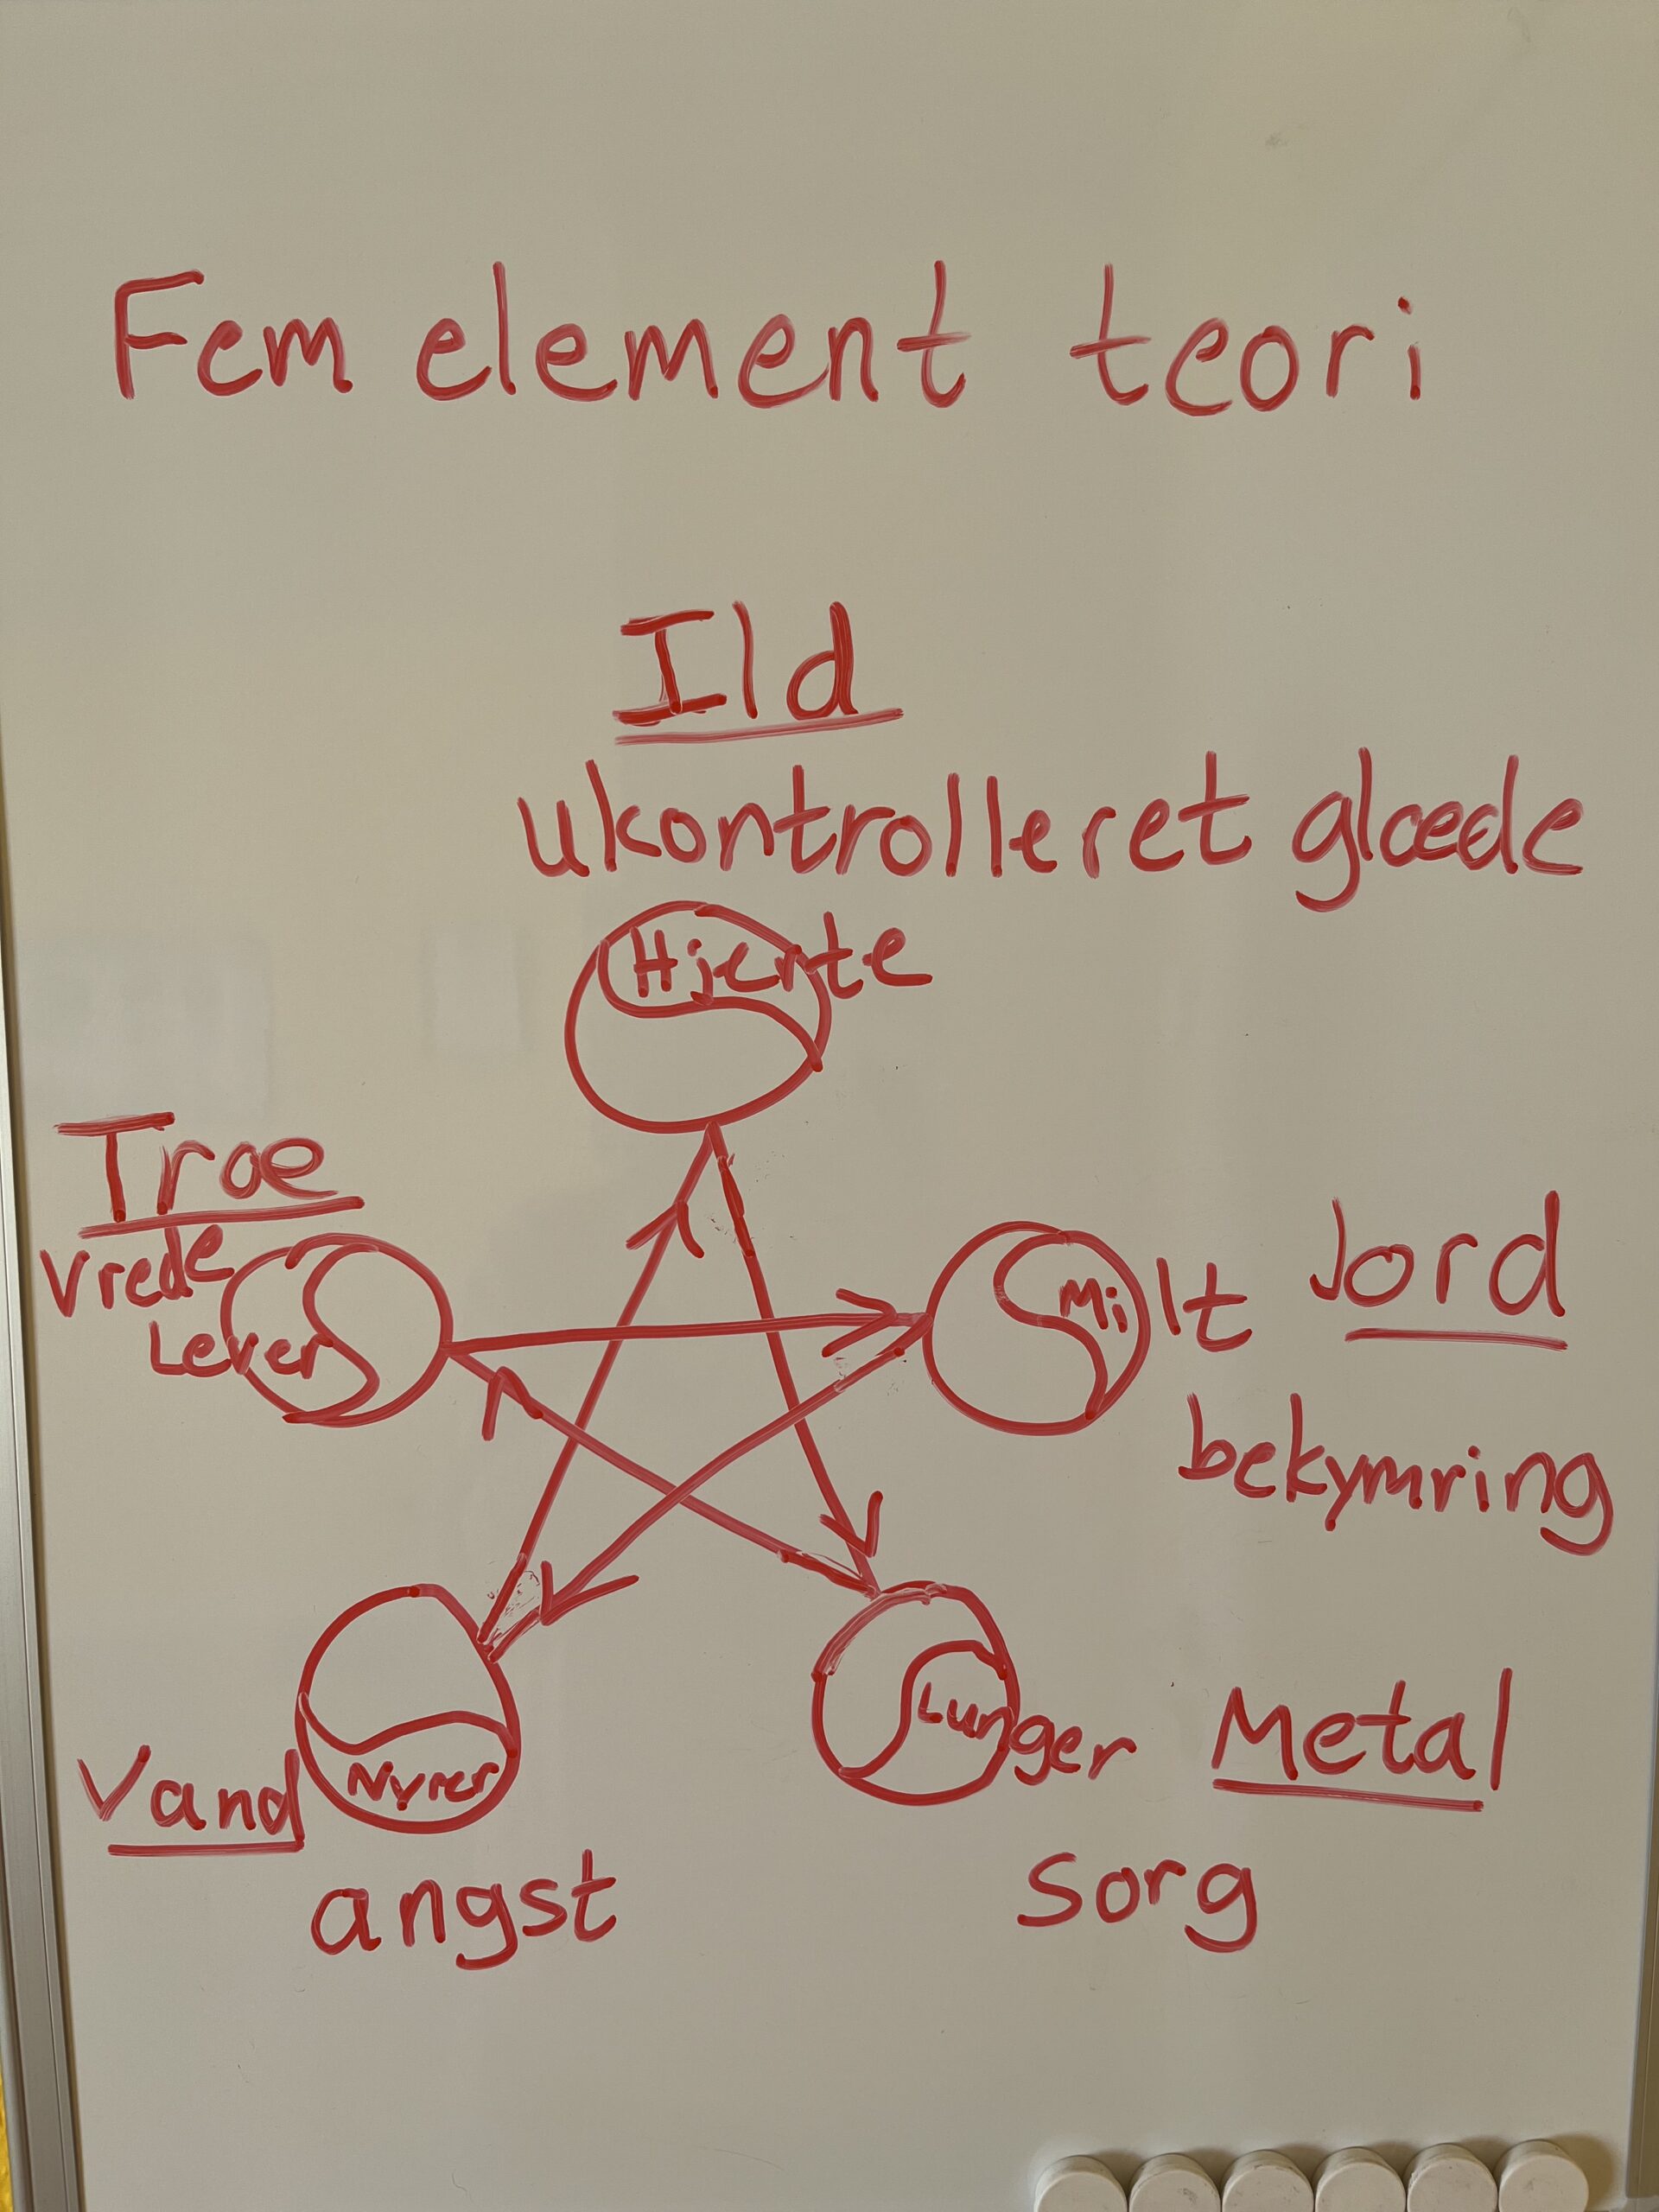 Fem element teori
Ild
ukontrolleret glæde
Hjerte
Træ
Vrede
Lever
Milt
Jord
bekymring
Vand
Nyrer
angst
Lunger
Metal
sorg